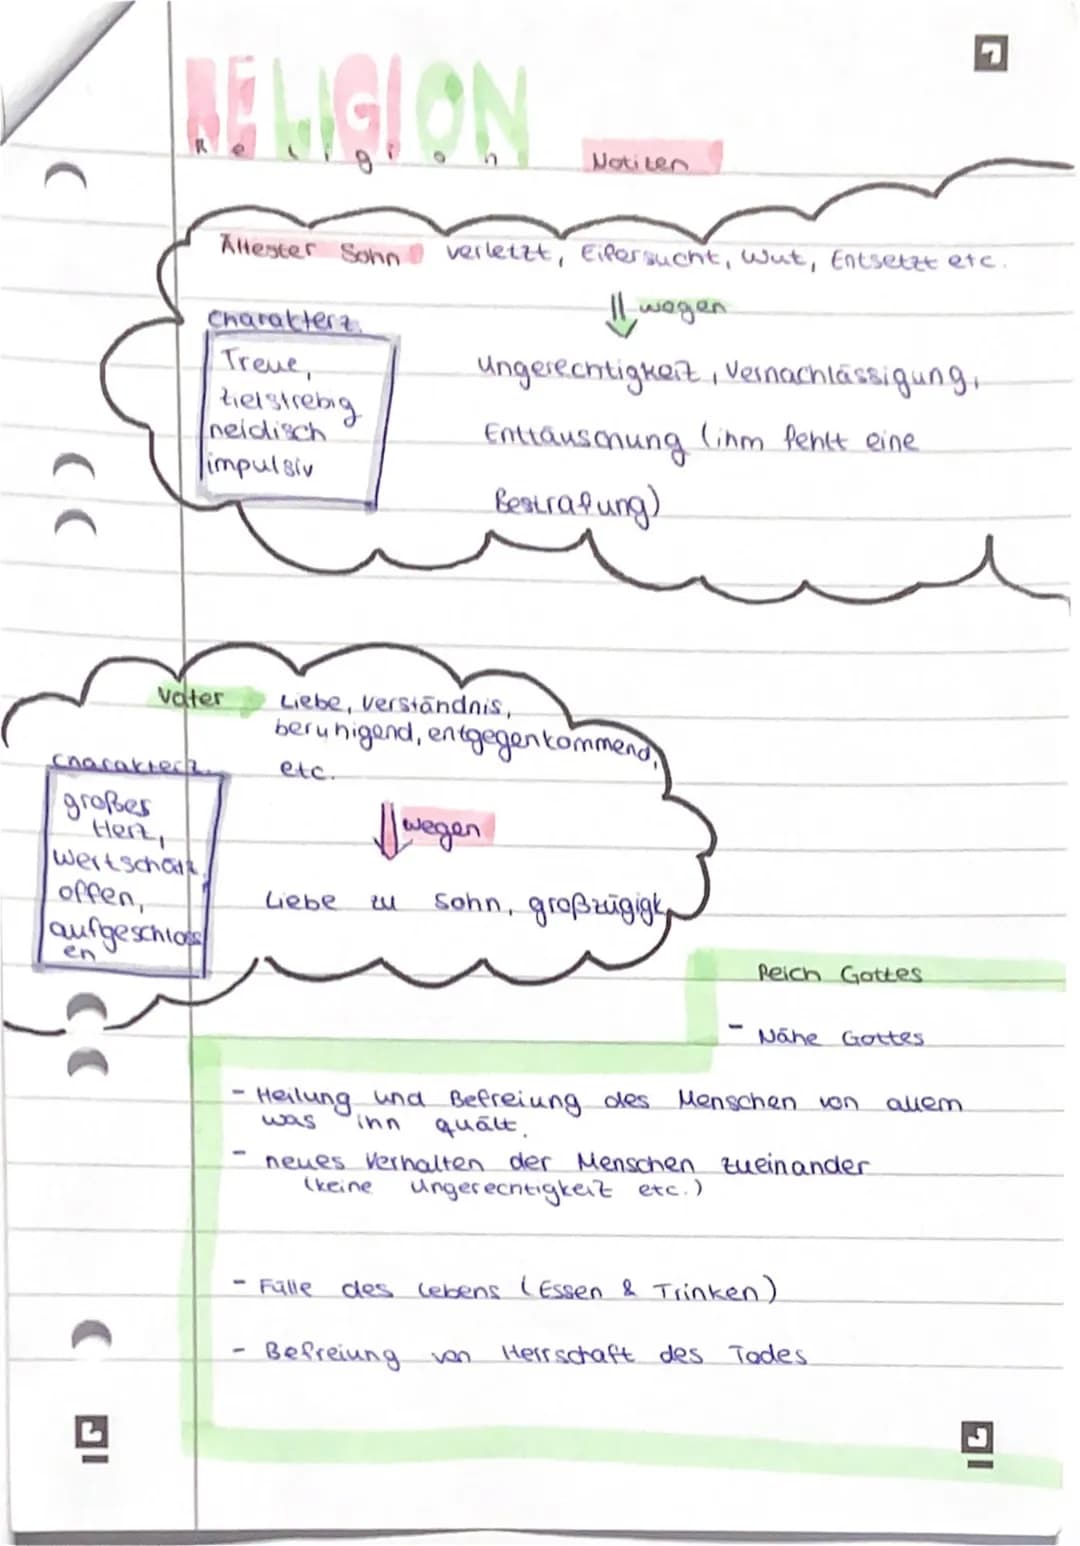 RELIGION
Religion
Notizen
Ältester Sohn verletzt, Eifersucht, Wut, Entsetzt etc.
wegen
Charakterz.
Treue,
zielstrebig
neidisch
impulsiv
Ungerechtigkeit, Vernachlässigung,
Enttäuschung (ihm fehlt eine
Bestrafung)
Vater Liebe, Verständnis,
beruhigend, entgegenkommend,
etc.
Charakterz.
großes
Herz,
wertschätz.
offen,
aufgeschloss
en
wegen
Liebe zu Sohn, großzügigk.
Reich Gottes
- Nähe Gottes
- Heilung und Befreiung des Menschen von allem
was ihn quält.
- neues Verhalten der Menschen zueinander
(keine Ungerechtigkeit etc.)
- Fülle des Lebens (Essen & Trinken)
- Befreiung von Herrschaft des Todes